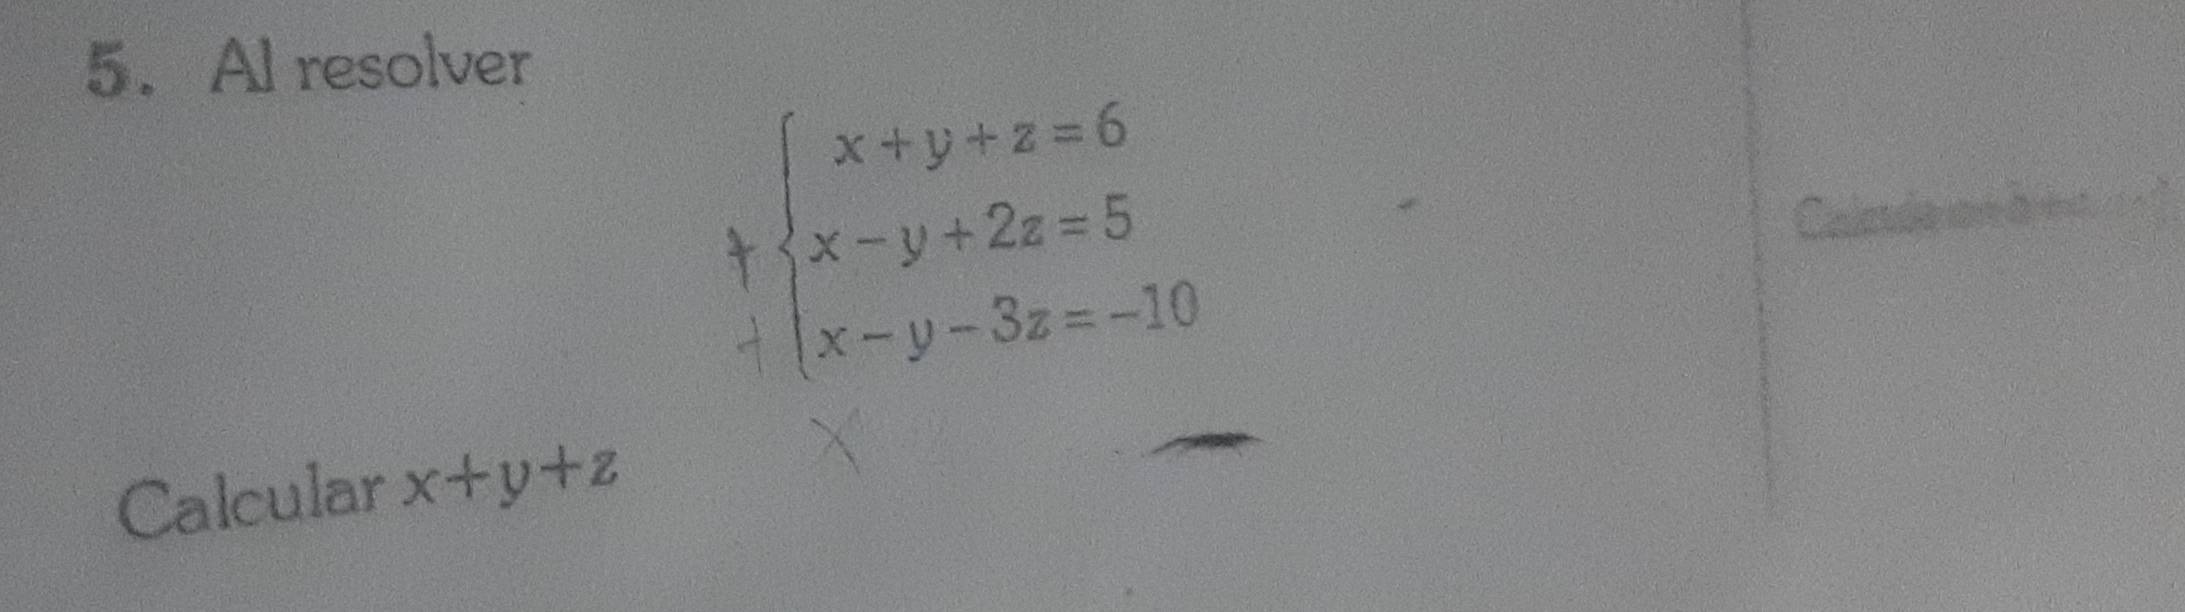 5. Al resolver
x+y+z=6
+ x-y+2z=5
+ x-y-3z=-10
x
Calcular x+y+z